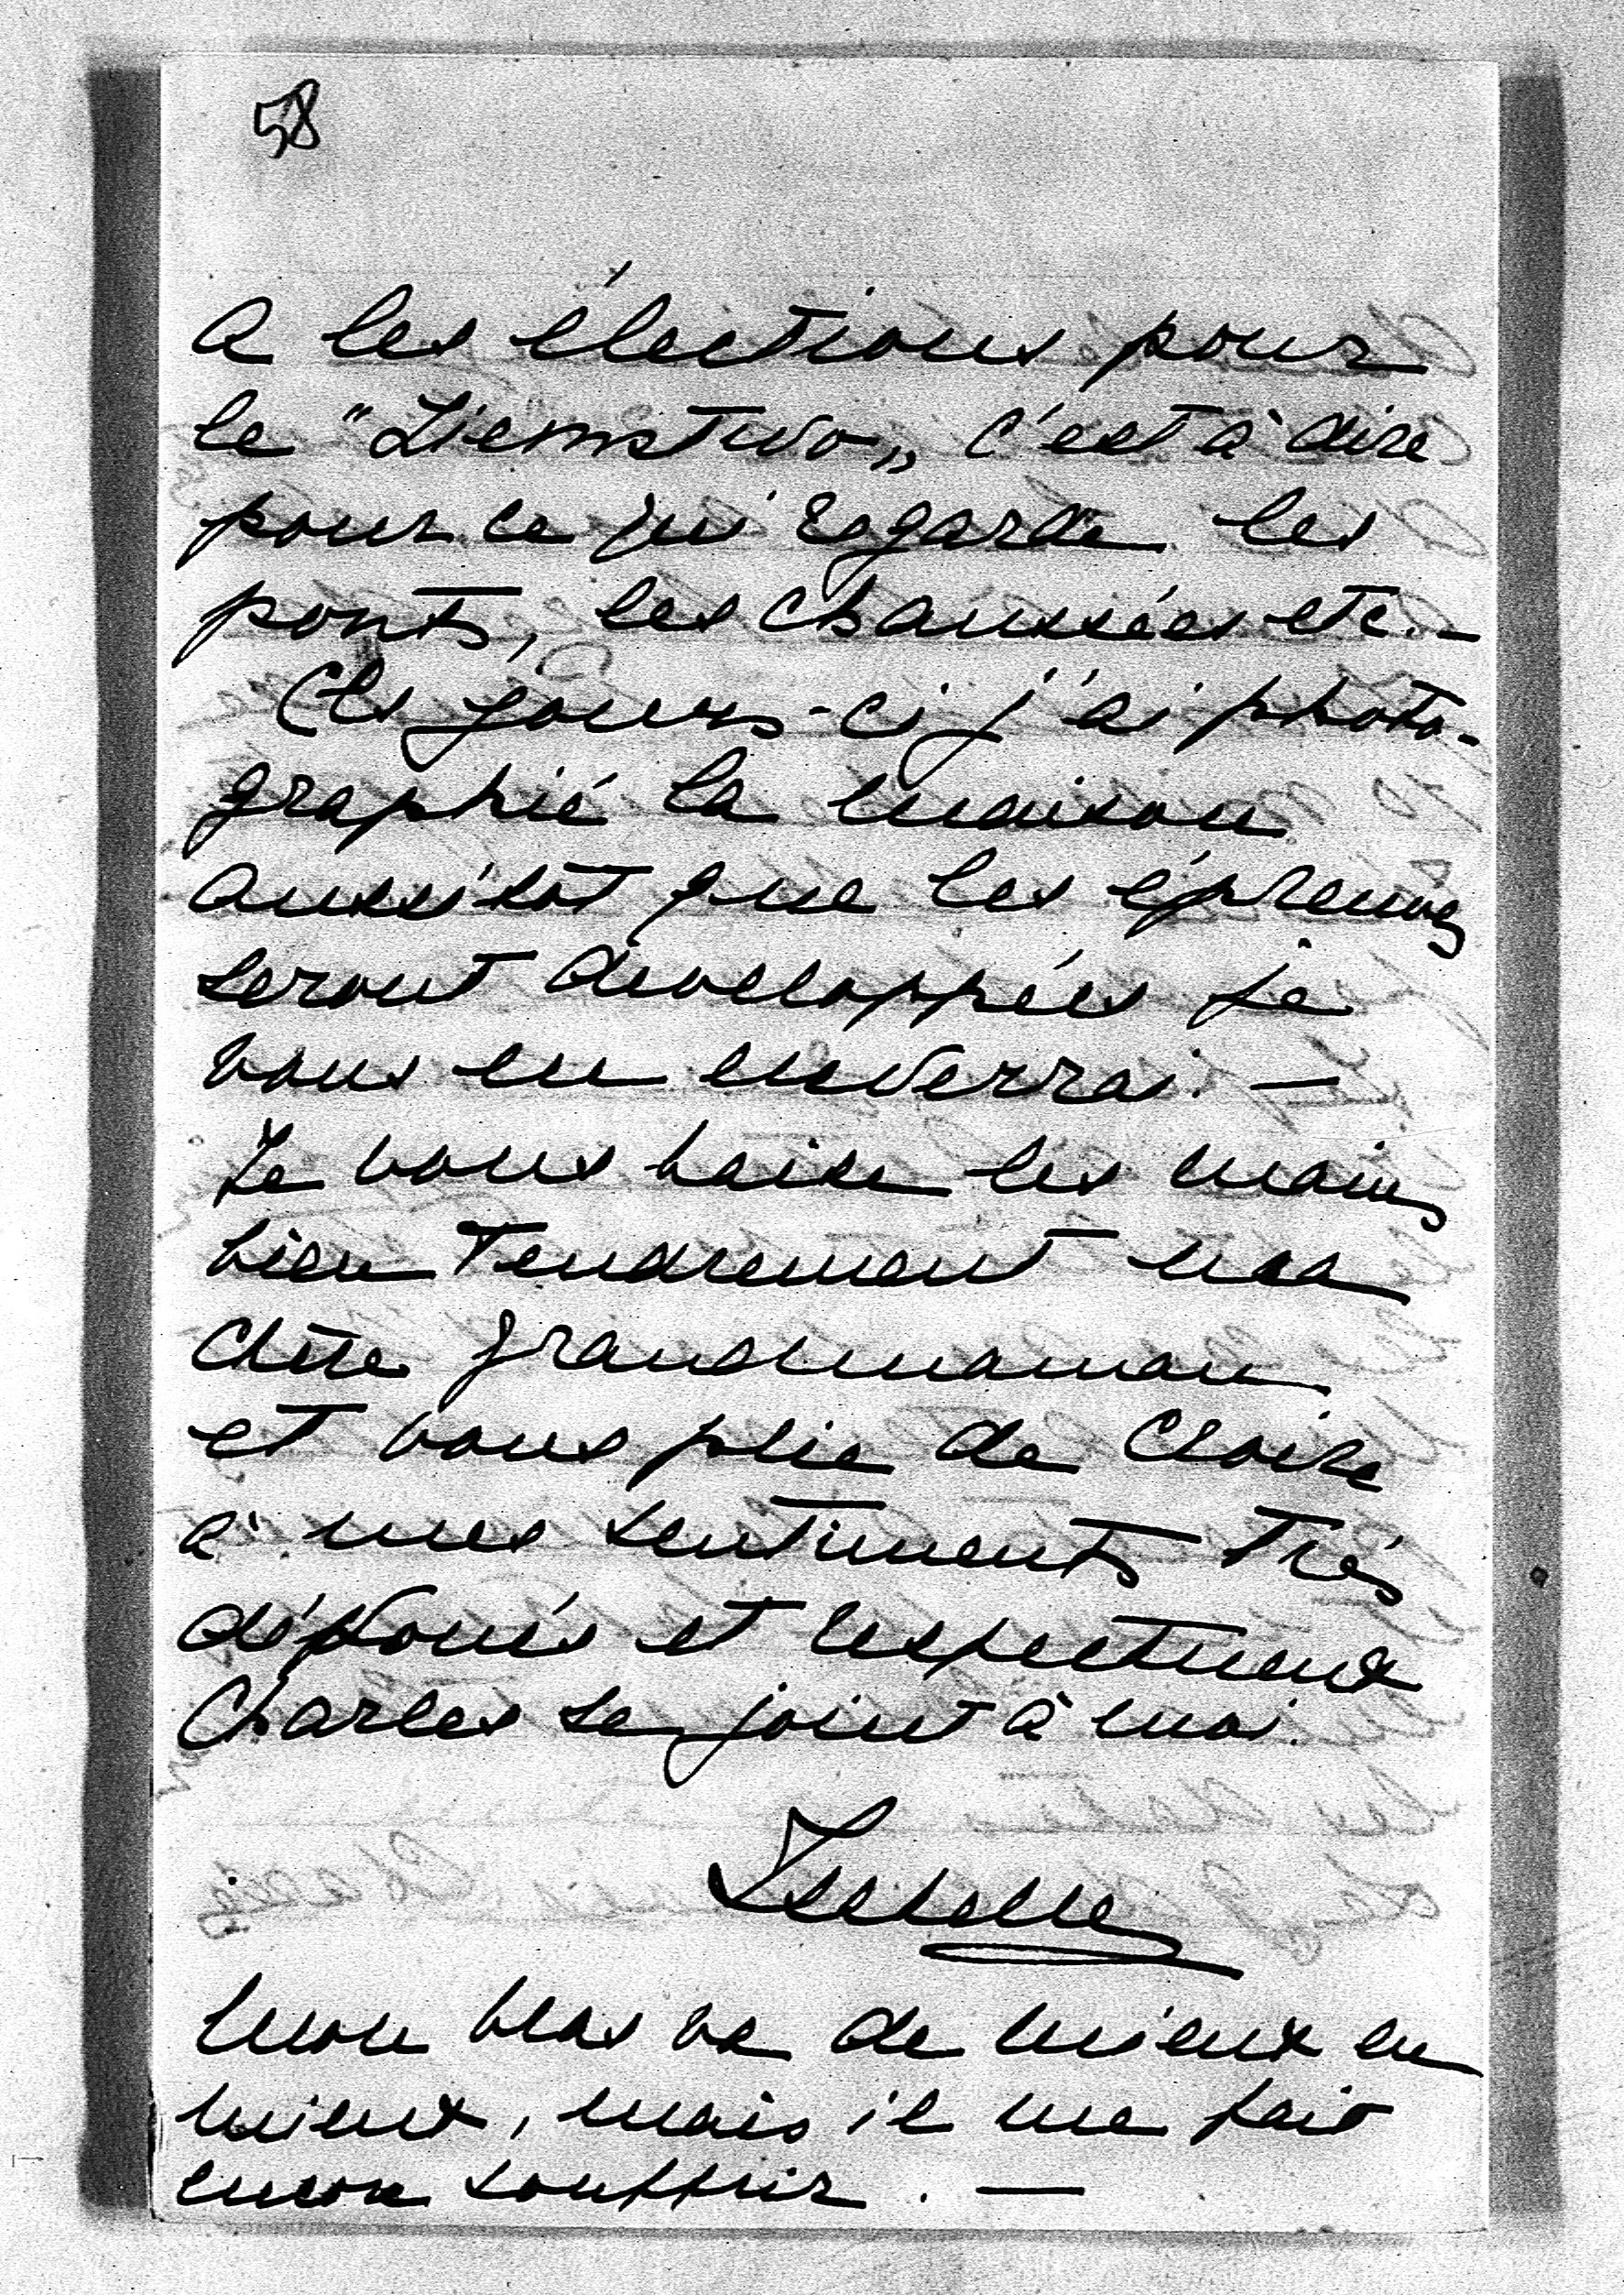 58
a les élections pour
le "Ziemstwo„ c'est à dire
pour ce qui regarde les
ponts, les chaussées etc. –
Ces jours-ci j'ai photo-
graphié la maison
aussitôt que les épreuves
seront developpées je
vous en enverrai. —
Je vous baise les mains
bien tendrement ma
chère grandmaman
et vous prie de croire
à mes sentiments très
dévoués et respectueux
Charles se joint à moi.
Isabelle
Mon bras va de mieux en
mieux, mais il me fait
encore souffrir. —